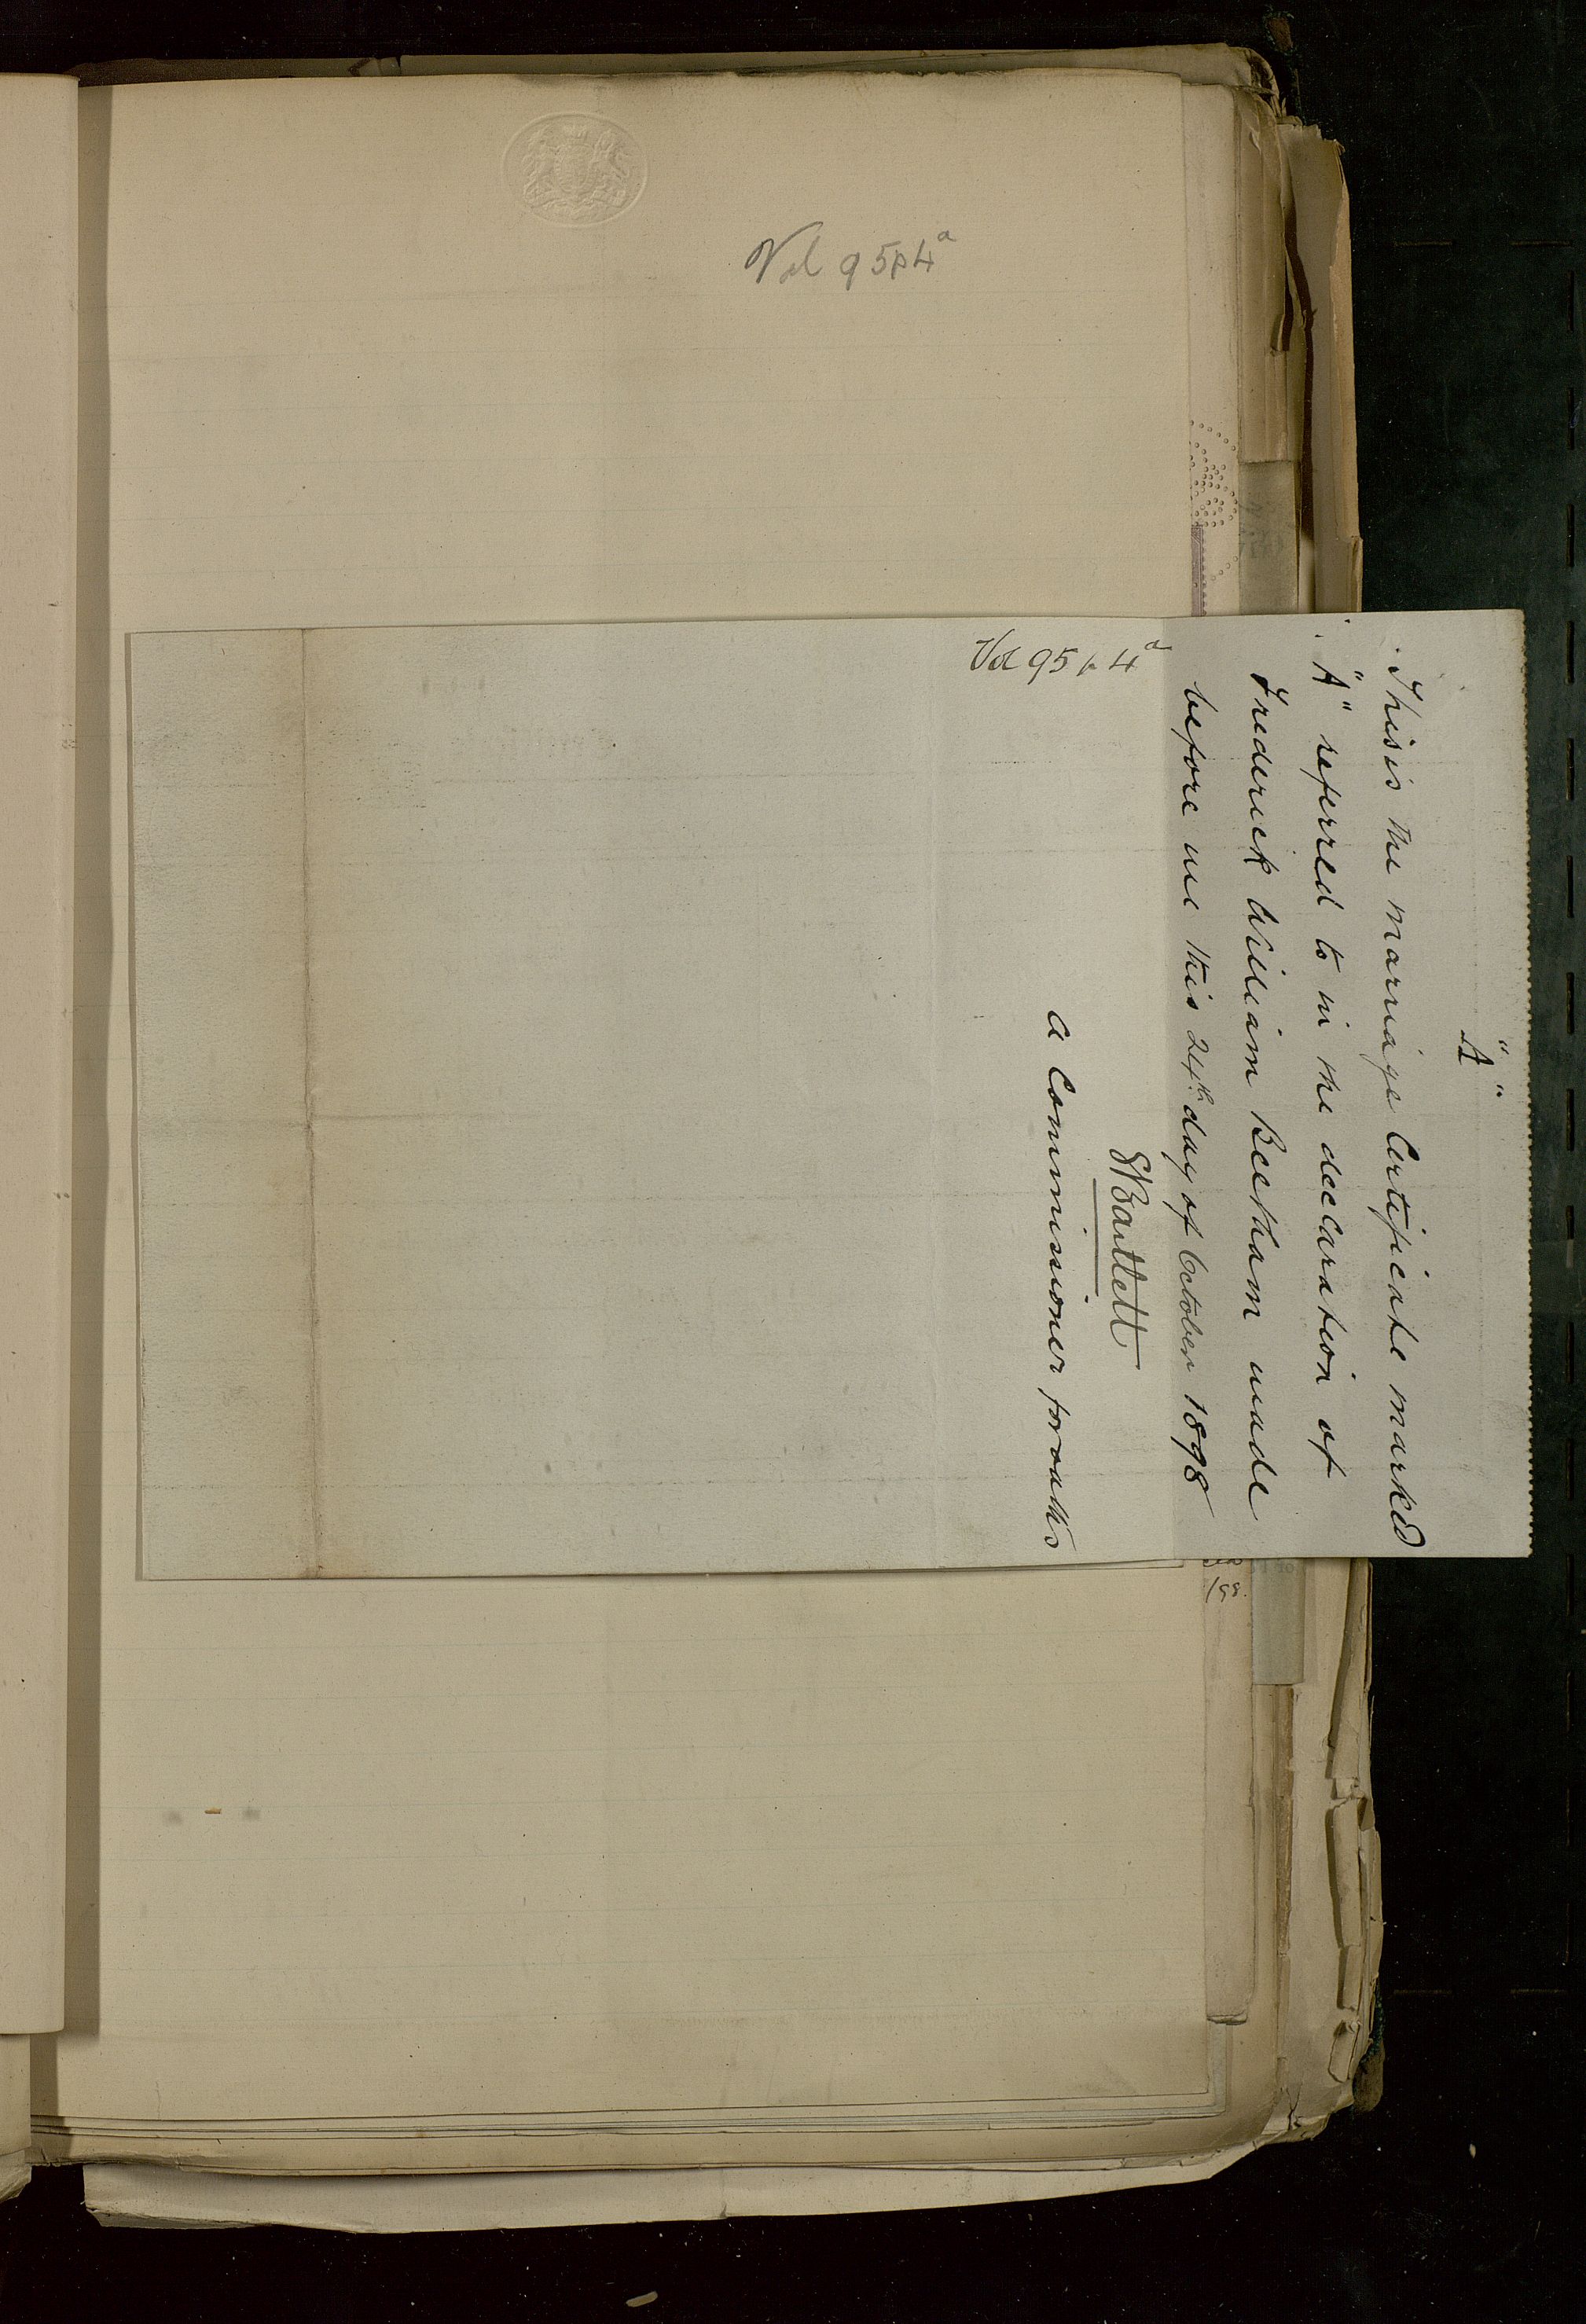 Vol 95 p 4a
"A"
This is the marriage Certificate marked
"A" referred to in the declaration of
Frederick William Beetham made
before me this 24th day of October 1898
Bartlett
a Commissioner for oaths
Vol 95 p 4a